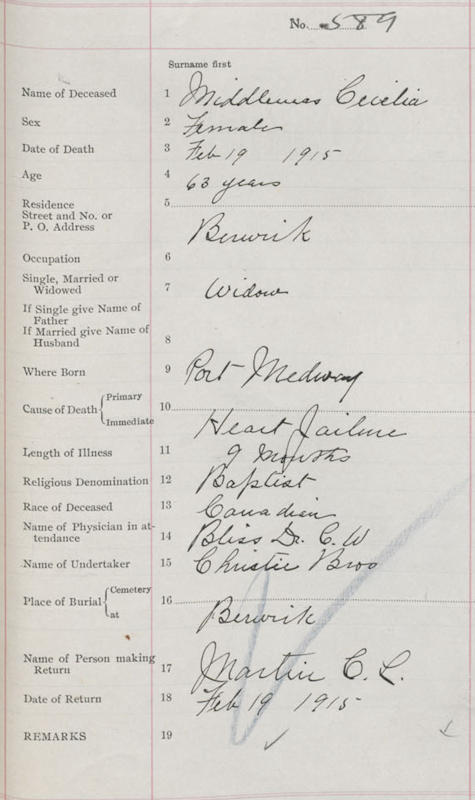 No. 589
Surname first
Name of Deceased 1 Middlemas Cecelia
Sex 2 Female
Date of Death 3 Feb 19 1915
Age 4 63 years
Residence 5
Street and No. or
P. O. Address Berwick
Occupation 6
Single, Married or
Widowed 7 Widow
If Single give Name of
Father
If Married give Name of
Husband 8
Where Born 9 Port Medway
Cause of Death { Primary 10
Immediate Heart Failure
Length of Illness 11 9 months
Religious Denomination 12 Baptist
Race of Deceased 13 Canadian
Name of Physician in at-
tendance 14 Bliss Dr. C. W
Name of Undertaker 15 Christie Bros
Place of Burial { Cemetery 16
at Berwick
Name of Person making
Return 17 Martin C. L.
Date of Return 18 Feb 19 1915
REMARKS 19